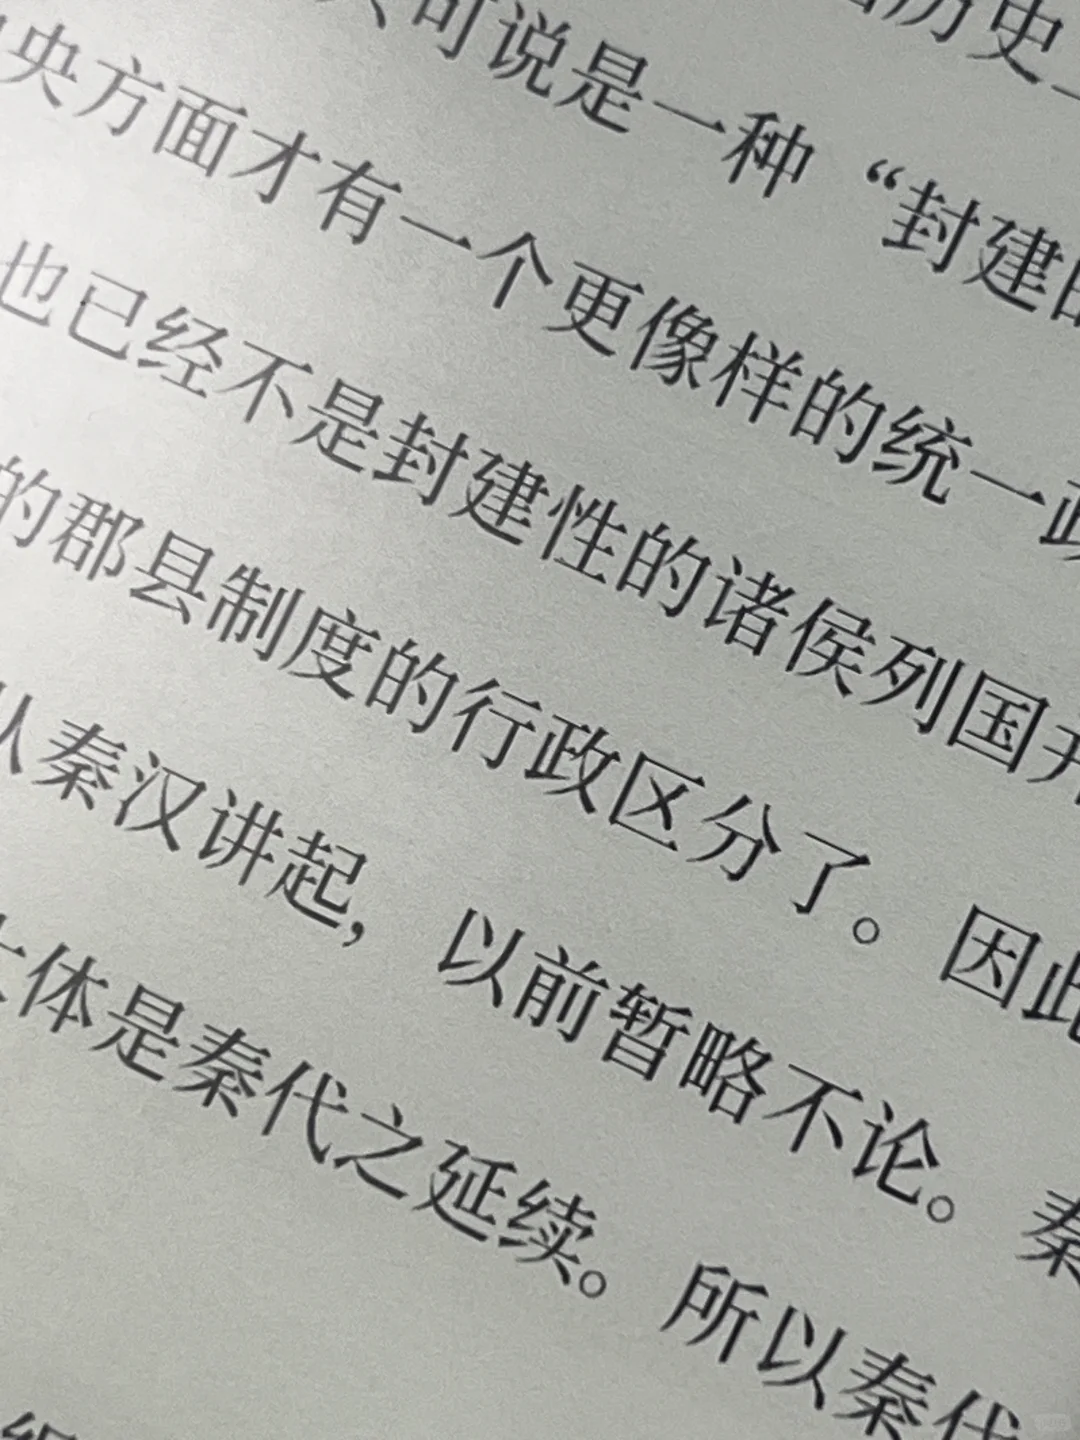 历史
可说是一种“封建
央方面才有一个更像样的统一
也已经不是封建性的诸侯列国
的郡县制度的行政区分了。因此
从秦汉讲起，以前暂略不论。秦
大体是秦代之延续。所以秦代